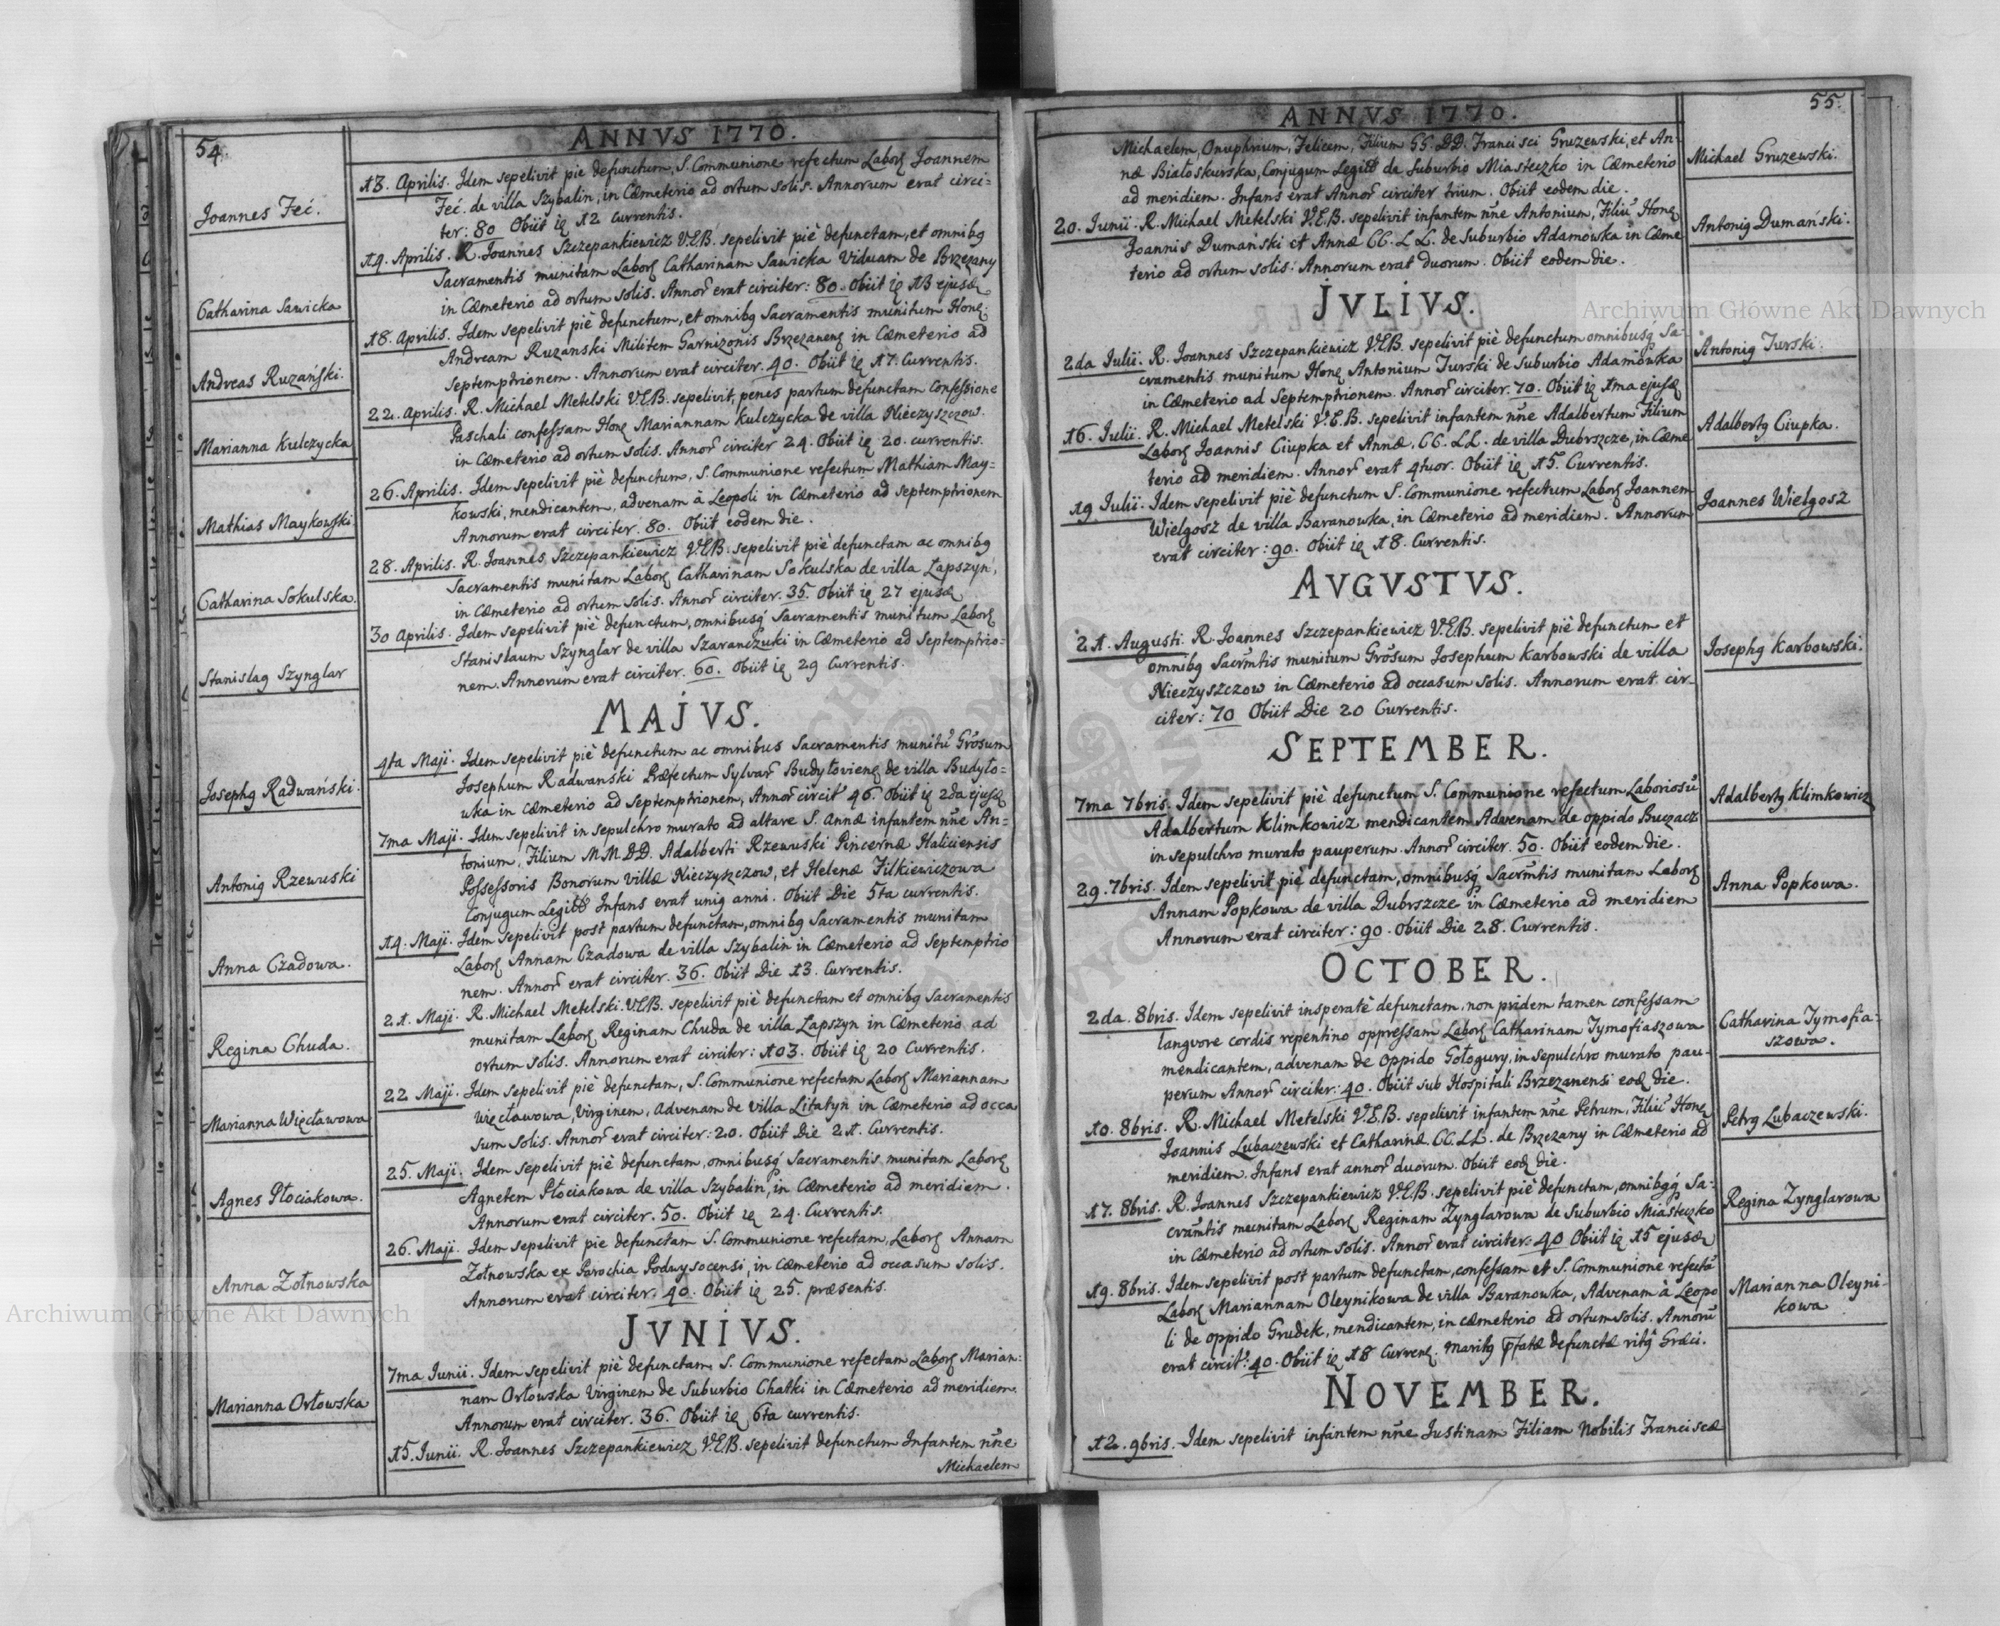 54.
ANNVS 1770.
Joannes Feć.
13. Aprilis. Idem sepelivit pie defunctum, S. Communione refectum Labors Joannem
Feć. de villa Szybalin, in Cæmeterio ad ortum solis. Annorum erat circi=
ter: 80 Obiit ię 12 currentis.
Catharina Sawicka
14. Aprilis. R. Joannes Szczepankiewicz V.E.B. sepelivit piè defunctam, et omnibg
Sacramentis munitam Labors Catharinam Sawicka Viduam de Brzezany
in Cæmeterio ad ortum solis. Annor erat circiter: 80. Obiit ię 13 ejusdę
Andreas Ruzański.
18. Aprilis. Idem sepelivit piè defunctum, et omnibg Sacramentis munitum Honę
Andream Ruzanski Militem Garnizonis Brzezanens in Cæmeterio ad
Septemptrionem. Annorum erat circiter. 40. Obiit ię 17. Currentis.
Marianna Kulczycka
22. Aprilis. R. Michael Metelski V.E.B. sepelivit, penes partum defunctam Confessione
Paschali confessam Honę Mariannam Kulczycka de villa Nieczyszczow.
in Cæmeterio ad ortum solis. Annor circiter 24. Obiit ię 20. currentis.
Mathias Maykowski
26. Aprilis. Idem sepelivit piè defunctum, S. Communione refectum Mathiam May=
kowski, mendicantem, advenam à Leopoli in Cæmeterio ad septemptrionem
Annorum erat circiter. 80. Obiit eodem die.
Catharina Sokulska.
28. Aprilis. R. Joannes Szczepankiewicz V.E.B. sepelivit piè defunctam ac omnibg
Sacramentis munitam Labors Catharinam Sokulska de villa Lapszyn,
in Cæmeterio ad ortum solis. Annor circiter. 35. Obiit ię 27 ejusdę
Stanislag Szynglar
30 Aprilis. Idem sepelivit piè defunctum, omnibusq Sacramentis munitum Labors
Stanislaum Szynglar de villa Szaranczuki in Cæmeterio ad Septemptrio=
nem. Annorum erat circiter. 60. Obiit ię 29 Currentis.
MAJVS.
Josephg Radwański.
4ta Maji. Idem sepelivit piè defunctum ac omnibus Sacramentis munitũ Grõsum
Josephum Radwanski Præfectum Sylvar Budyłoviens de villa Budyło=
wka in Cæmeterio ad Septemptrionem, Annor circit 46. Obiit ię 2da ejusdę
Antonig Rzewuski
7ma Maji. Idem sepelivit in sepulchro murato ad altare S. Annæ infantem nñe An=
tonium, Filium M M. DD. Adalberti Rzewuski Pincernæ Haliciensis
Possessoris Bonorum villæ Nieczyszczow, et Helenæ Filkiewiczowa
Conjugum Legitt Infans erat unig anni. Obiit Die 5ta currentis.
Anna Czadowa.
14. Maji. Idem sepelivit post partum defunctam, omnibg Sacramentis munitam
Labors Annam Czadowa de villa Szybalin in Cæmeterio ad Septemptrio
nem. Annor erat circiter. 36. Obiit Die 13. Currentis.
Regina Chuda.
21. Maji. R. Michael Metelski V.E.B. sepelivit piè defunctam et omnibg Sacramentis
munitam Labors Reginam Chuda de villa Lapszyn in Cæmeterio ad
ortum solis. Annorum erat circiter: 103. Obiit ię 20 Currentis.
Marianna Więcławowa
22 Maji. Idem sepelivit piè defunctam, S. Communione refectam Labors Mariannam
Więcławowa, Virginem, Advenam de villa Litatyn in Cæmeterio ad occa
sum solis. Annor erat circiter: 20. Obiit Die 21. Currentis.
Agnes Płociakowa.
25. Maji. Idem sepelivit piè defunctam, omnibusq Sacramentis munitam Labors
Agnetem Płociakowa de villa Szybalin, in Cæmeterio ad meridiem.
Annorum erat circiter. 50. Obiit ię 24. Currentis.
Anna Zołnowska
26. Maji. Idem sepelivit pie defunctam S. Communione refectam, Labors Annam
Zołnowska ex Parochia Podwysocensi, in Cæmeterio ad occasum solis.
Annorum erat circiter: 40. Obiit ię 25. præsentis.
JVNIVS.
Marianna Orłowska
7ma Iunii. Idem sepelivit piè defunctam, S. Communione refectam Labors Marian=
nam Orłowska Virginem de Suburbio Chatki in Cæmeterio ad meridiem.
Annorum erat circiter. 36. Obiit ię 6ta currentis.
15. Iunii. R. Joannes Szczepankiewicz V.E.B. sepelivit defunctum Infantem nñe
Michaelem
55.
ANNVS 1770.
Michaelem, Onuphrium, Felicem, Filium GG. DD. Francisci Gruzewski, et An=
næ Białoskurska, Conjugum Legitt de Suburbio Miasteczko in Cæmeterio
ad meridiem. Infans erat Annor circiter trium. Obiit eodem die.
Michael Gruzewski.
20. Iunii. R. Michael Metelski V.E.B. sepelivit infantem nñe Antonium, Filiũ Honę
Joannis Dumański et Annæ CC. LL. de Suburbio Adamowka in Cæme
terio ad ortum solis. Annorum erat duorum. Obiit eodem die.
Antonig Dumański.
JVLIVS.
2da Iulii. R. Joannes Szczepankiewicz V.E.B. sepelivit piè defunctum omnibusq Sa=
cramentis munitum Honę Antonium Turski de Suburbio Adamowka
in Cæmeterio ad Septemptrionem. Annor circiter. 70. Obiit ię 1ma ejusdę
Antonig Turski.
16. Iulii. R. Michael Metelski V.E.B. sepelivit infantem nñe Adalbertum Filium
Labors Joannis Ciupka et Annæ. CC. LL. de villa Dubrszcze, in Cæme
terio ad meridiem. Annor erat 4tuor. Obiit ię 15. Currentis.
Adalbertg Ciupka.
19 Iulii. Idem sepelivit piè defunctum S. Communione refectum Labors Joannem
Wielgosz de villa Baranowka, in Cæmeterio ad meridiem. Annorum
erat circiter: 90. Obiit ię 18. Currentis.
Joannes Wielgosz
AVGVSTVS.
21. Augusti. R. Joannes Szczepankiewicz V.E.B. sepelivit piè defunctum et
omnibg Sacrm̃tis munitum Grõsum Josephum Karbowski de villa
Nieczyszczow in Cæmeterio ad occasum solis. Annorum erat cir=
citer: 70 Obiit Die 20 Currentis.
Josephg Karbowski.
SEPTEMBER.
7ma 7bris. Idem sepelivit piè defunctum S. Communione refectum Laboriosũ
Adalbertum Klimkowicz mendicantem Advenam de oppido Buczacz
in sepulchro murato pauperum. Annor circiter. 50. Obiit eodem die.
Adalbertg Klimkowicz
29. 7bris. Idem sepelivit piè defunctam, omnibusq Sacrm̃tis munitam Labors
Annam Popkowa de villa Dubrszcze in Cæmeterio ad meridiem
Annorum erat circiter: 90. Obiit Die 28. Currentis.
Anna Popkowa.
OCTOBER.
2da. 8bris. Idem sepelivit insperatè defunctam, non pridem tamen confessam
langvore cordis repentino oppressam Labors Catharinam Tymofiaszowa
mendicantem, advenam de Oppido Gołogury, in sepulchro murato pau=
perum Annor circiter: 40. Obiit sub Hospitali Brzezanensi eod die.
Catharina Tymofia=
szowa.
10. 8bris. R. Michael Metelski V.E.B. sepelivit infantem nñe Petrum, Filiũ Honę
Joannis Lubaczewski et Catharinæ CC. LL. de Brzezany in Cæmeterio ad
meridiem. Infans erat annor duorum. Obiit eod die.
Petrg Lubaczewski.
17. 8bris. R. Joannes Szczepankiewicz V.E.B. sepelivit piè defunctam, omnibgq Sa=
cram̃tis munitam Labors Reginam Zynglarowa de Suburbio Miasteczko
in Cæmeterio ad ortum solis. Annor erat circiter: 40 Obiit ię 15 ejusdę
Regina Zynglarowa
19. 8bris. Idem sepelivit post partum defunctam, confessam et S. Communione refectã
Labors Mariannam Oleynikowa de villa Baranowka, Advenam à Leopo
li de oppido Grudek, mendicantem, in cæmeterio ad ortum solis. Annorũ
erat circit: 40. Obiit ię 18 Currens. maritg pfatæ defunctæ ritg Græci.
Marianna Oleyni=
kowa
NOVEMBER.
12. 9bris. Idem sepelivit infantem nñe Justinam Filiam Nobilis Franciscæ
Archiwum Główne Akt Dawnych
Archiwum Główne Akt Dawnych